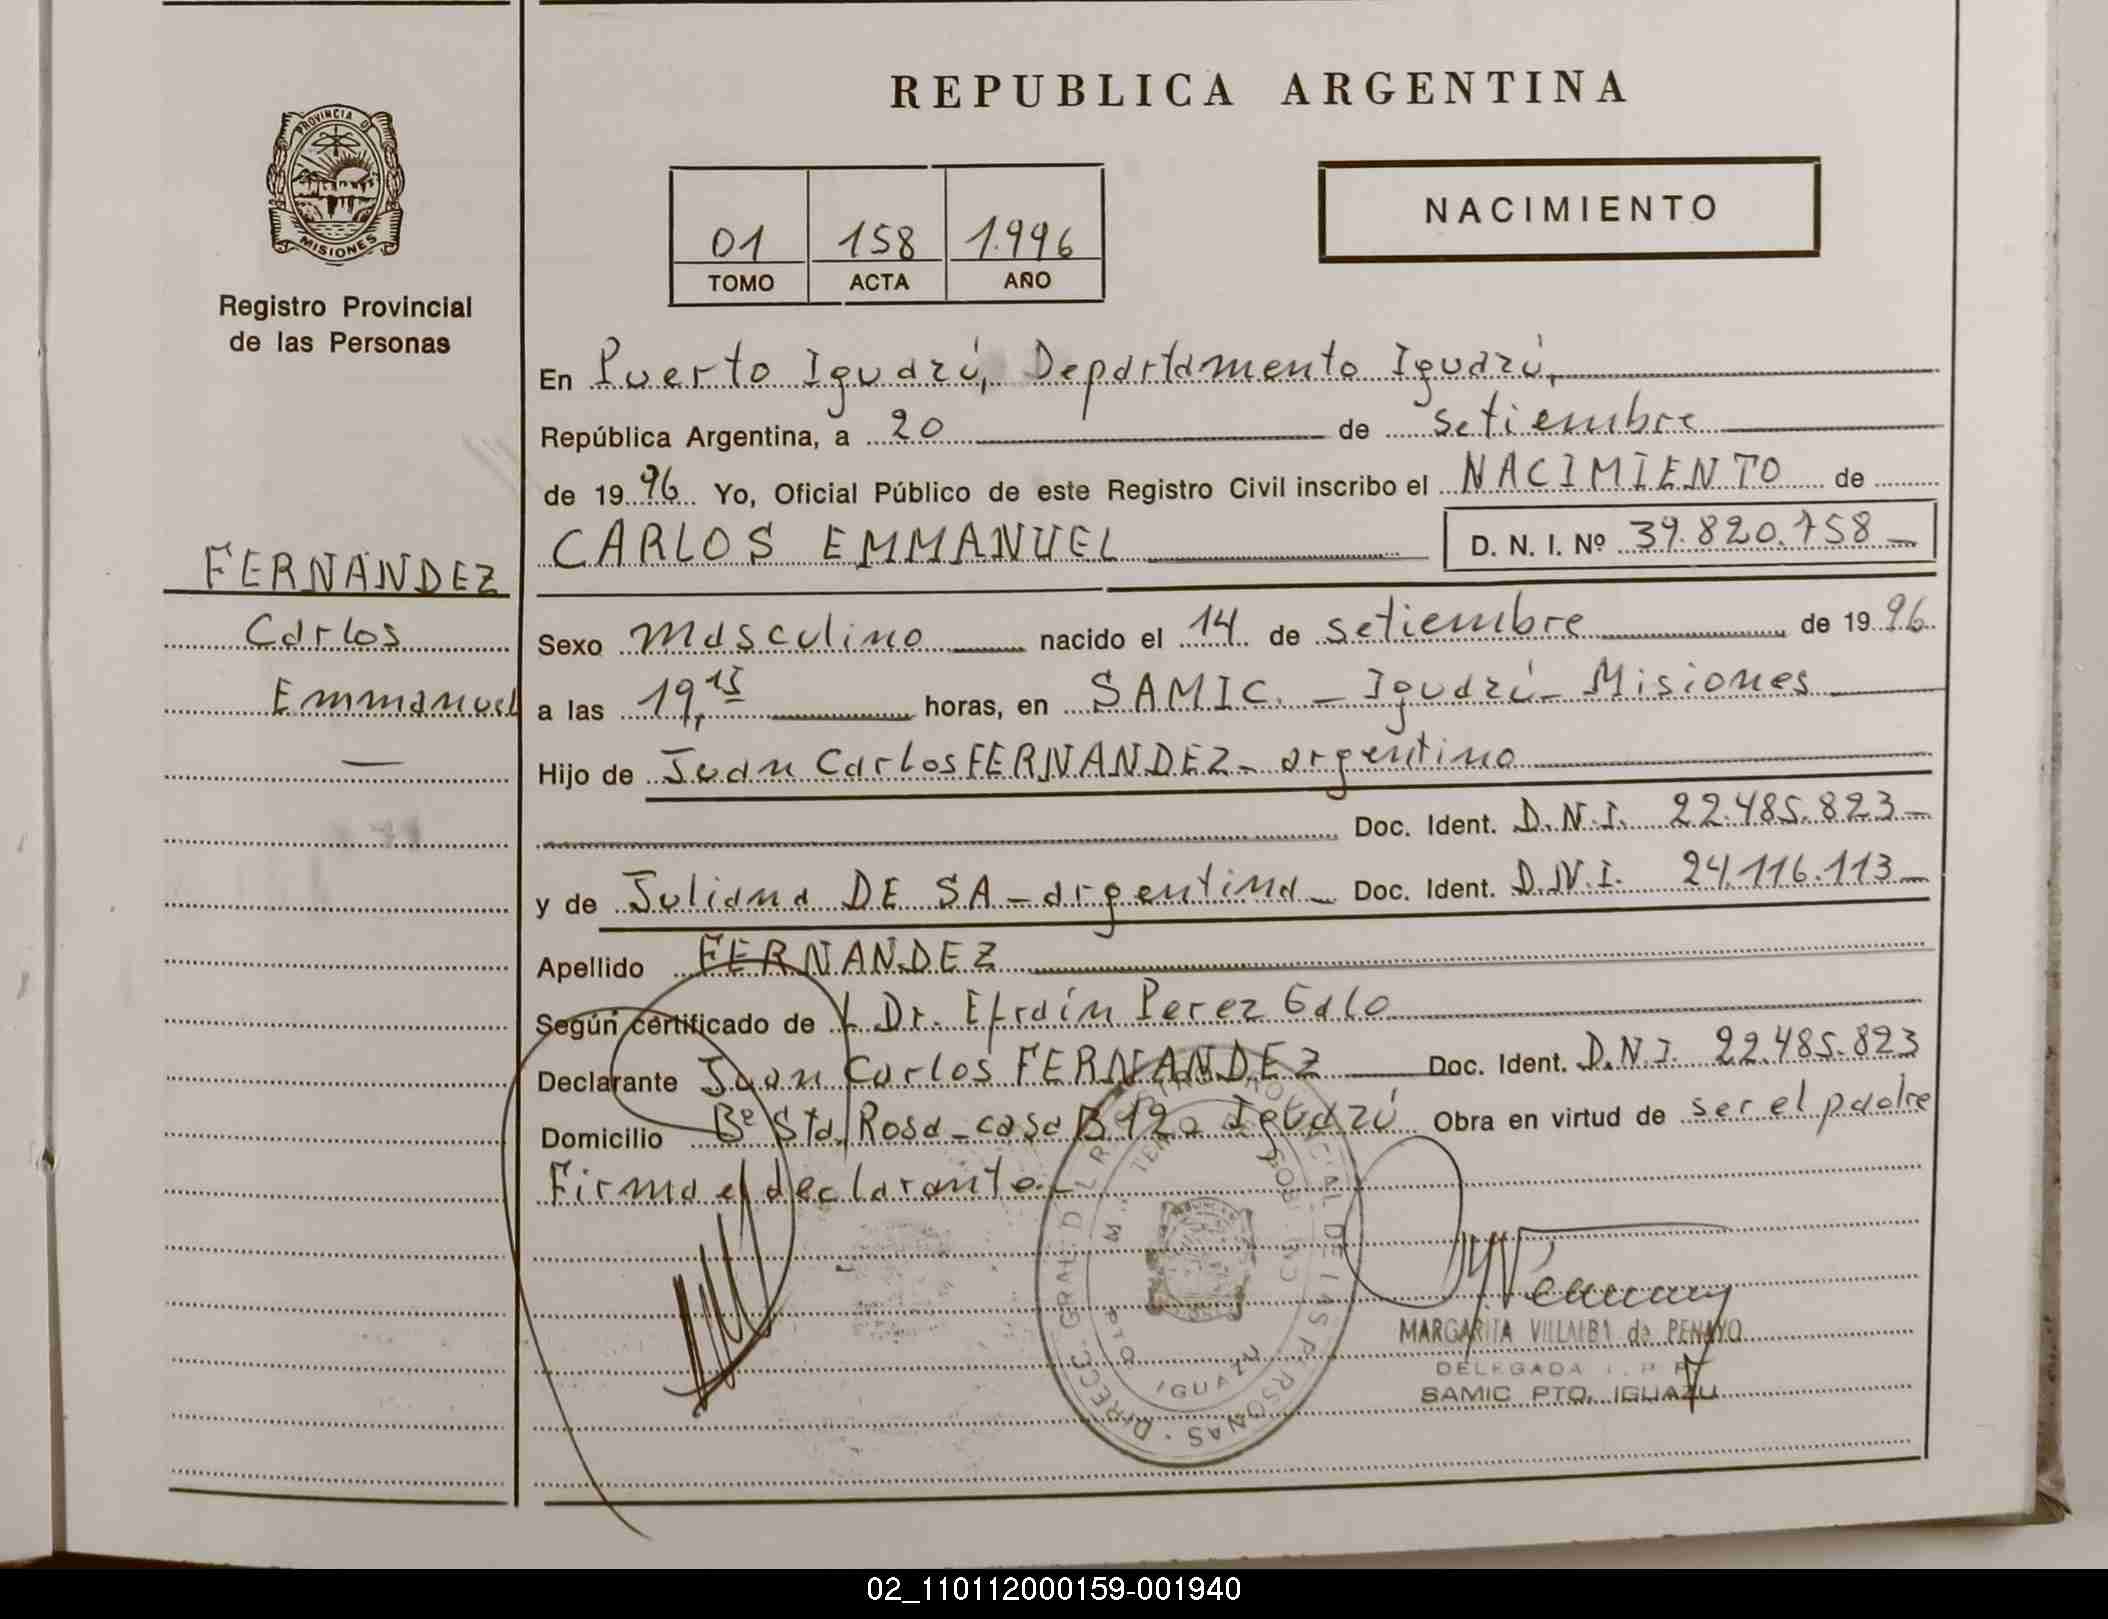 REPUBLICA ARGENTINA
PROVINCIA D
MISIONES
Registro Provincial
de las Personas
01 158 1.996
TOMO ACTA AÑO
NACIMIENTO
En Puerto Iguazú, Departamento Iguazú,
República Argentina, a 20 de setiembre
de 1996 Yo, Oficial Público de este Registro Civil inscribo el NACIMIENTO de
CARLOS EMMANUEL D. N. I. Nº 39.820.758
FERNANDEZ
Carlos
Emmanuel
Sexo masculino nacido el 14 de setiembre de 1996
a las 19,15 horas, en SAMIC. - Iguazú - Misiones
Hijo de Juan Carlos FERNANDEZ - argentino
Doc. Ident. D.N.I. 22.485.823
y de Juliana DE SA - argentina - Doc. Ident. D.N.I. 24.116.113
Apellido FERNANDEZ
Según certificado de L Dr. Efraín Perez Galo
Declarante Juan Carlos FERNANDEZ Doc. Ident. D.N.I. 22.485.823
Domicilio Bº Sta. Rosa - casa B 12 - Iguazú Obra en virtud de ser el padre
Firma el declarante.-
MARGARITA VILLALBA de PENAYO
DELEGADA
SAMIC PTO. IGUAZU
02_110112000159-001940